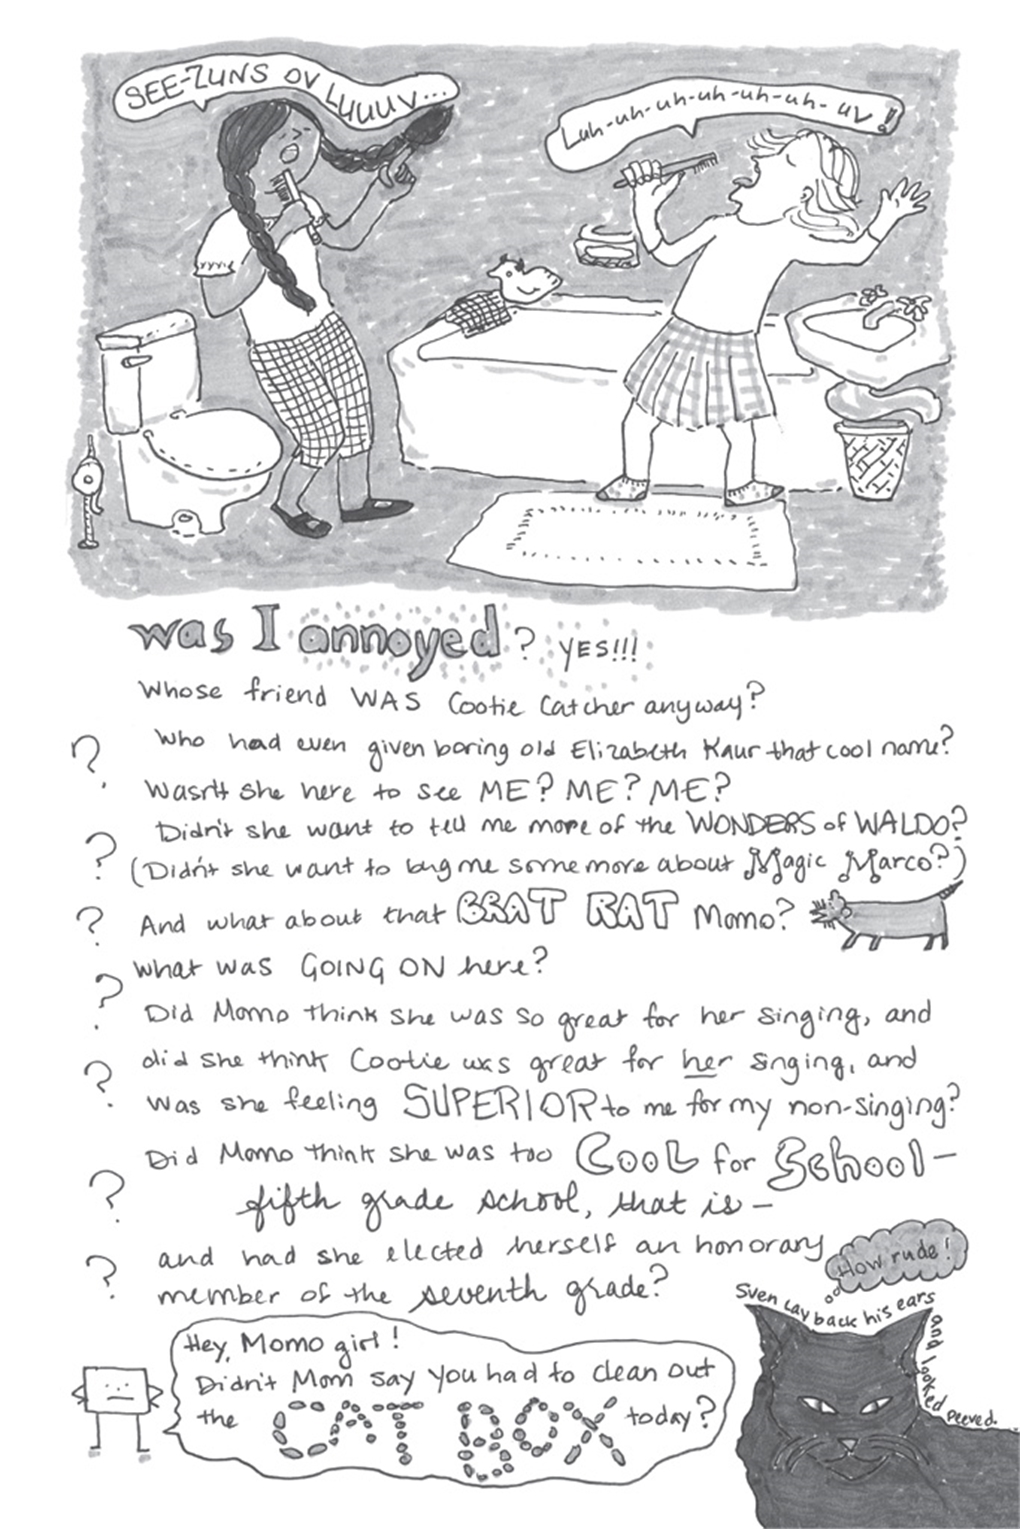 SEE-ZUNS OV LUUUV...
Luh-uh-uh-uh-uh-uh-uv!
was I annoyed? YES!!!
Whose friend WAS Cootie Catcher anyway?
Who had even given boring old Elizabeth Kaur that cool name?
Wasn't she here to see ME? ME? ME?
Didn't she want to tell me more of the WONDERS of WALDO?
(Didn't she want to bug me some more about Magic Marco?)
And what about that BRAT RAT Momo?
What was GOING ON here?
Did Momo think she was so great for her singing, and
did she think Cootie was great for her singing, and
was she feeling SUPERIOR to me for my non-singing?
Did Momo think she was too COOL for School—
fifth grade school, that is—
and had she elected herself an honorary
member of the seventh grade?
How rude!
Sven lay back his ears and looked peeved.
Hey, Momo girl!
Didn't Mom say you had to clean out
the CAT BOX today?